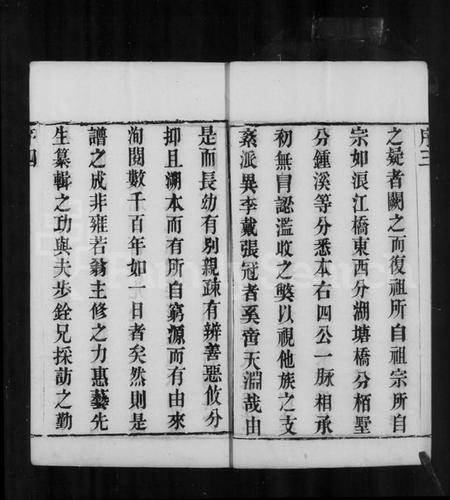 序三
之疑者闕之而復祖所自祖宗所自
宗如浪江橋東西分湖塘橋分栢墅
分鍾溪等分悉本右四公一脉相承
初無冒認濫收之獘以視他族之支
紊派異李戴張冠者奚啻天淵哉由
是而長幼有别親疎有辨善惡攸分
抑且溯本而有所自窮源而有由來
洵閱數千百年如一日者矣然則是
譜之成非雍若翁主修之力惠藝先
生纂輯之功與夫步銓兄採訪之勤
序四